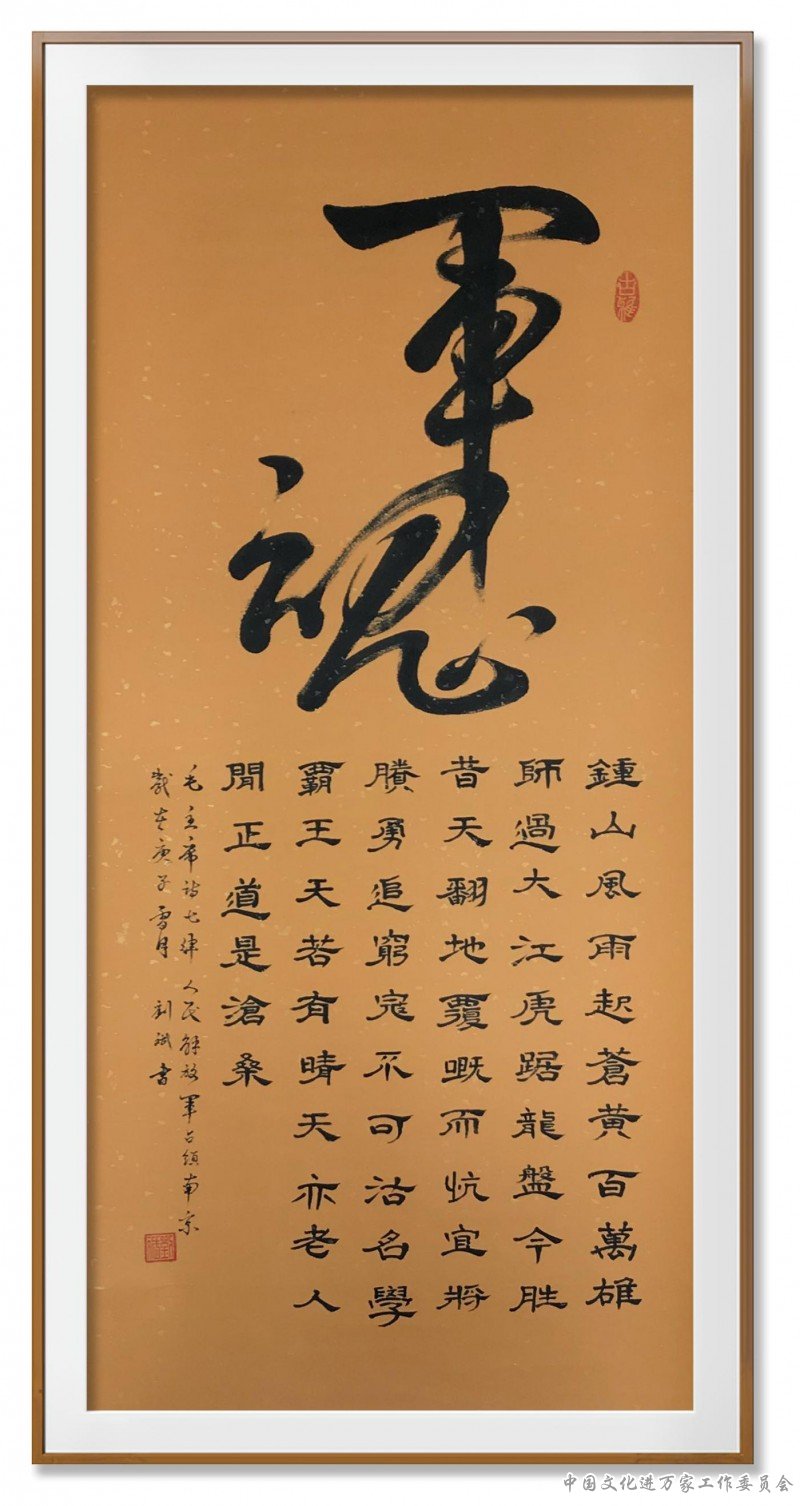 軍魂
鍾山風雨起蒼黄百萬雄
師過大江虎踞龍盤今胜
昔天翻地覆嘅而忼宜將
賸勇追窮寇不可沽名學
霸王天若有晴天亦老人
閒正道是滄桑
毛主席詩七律 人民解放軍占領南京
歲在庚子雪月 刘斌書
中国文化进万家工作委员会